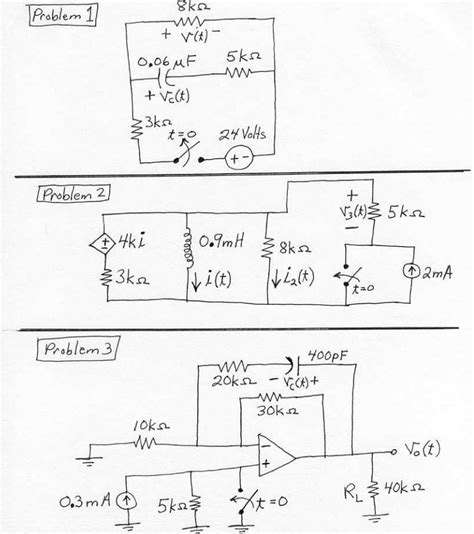 Problem 1
8kΩ
+ v(t) −
0.06 μF
5kΩ
+ Vc(t)
3kΩ
t=0
24 Volts
+ −
Problem 2
+
V3(t)
−
5kΩ
±
4ki
0.9mH
8kΩ
3kΩ
i(t)
i2(t)
t=0
2mA
Problem 3
400pF
20kΩ
− Vc(t) +
30kΩ
10kΩ
−
+
Vo(t)
0.3mA
5kΩ
t=0
RL
40kΩ